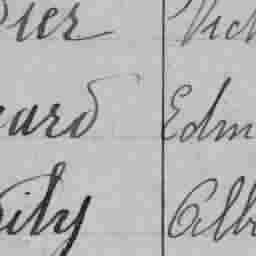 ier Vict
uard Edm
ily Alb